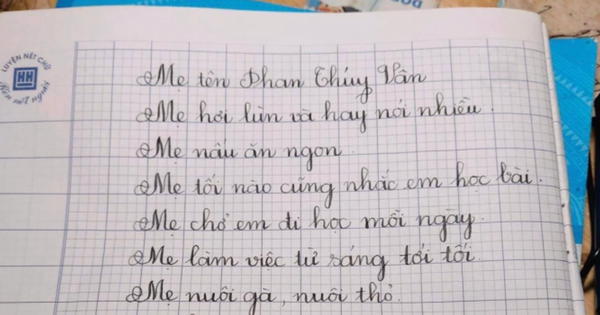 LUYỆN NÉT CHỮ
HH
Rèn nết người
Mẹ tên Phan Thúy Vân
Mẹ hơi lùn và hay nói nhiều.
Mẹ nấu ăn ngon
Mẹ tối nào cũng nhắc em học bài.
Mẹ chở em đi học mỗi ngày.
Mẹ làm việc từ sáng tới tối
Mẹ nuôi gà, nuôi thỏ.